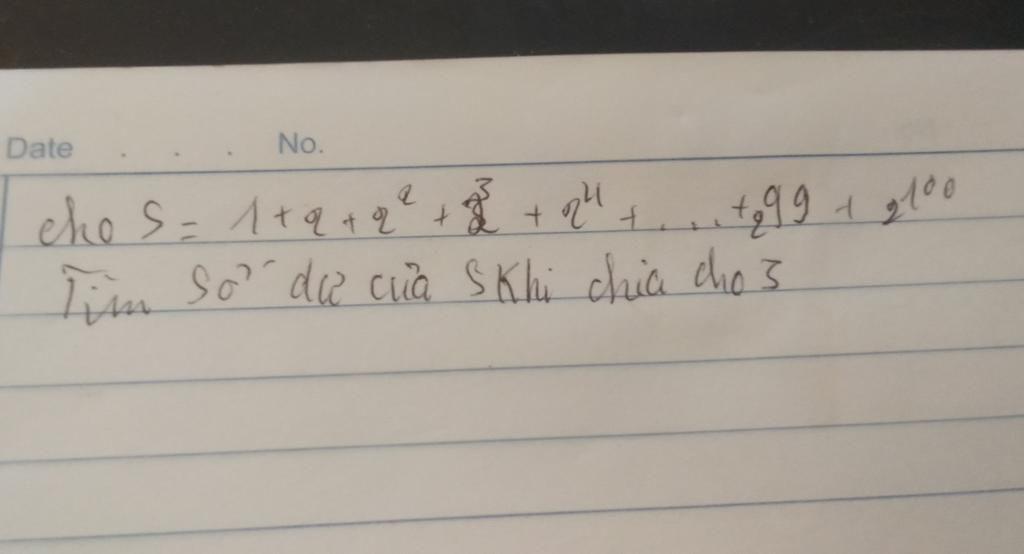 Date . . . No.
cho S = 1 + 2 + 2² + 2³ + 2⁴ + ... + 2⁹⁹ + 2¹⁰⁰
Tìm số dư của S Khi chia cho 3